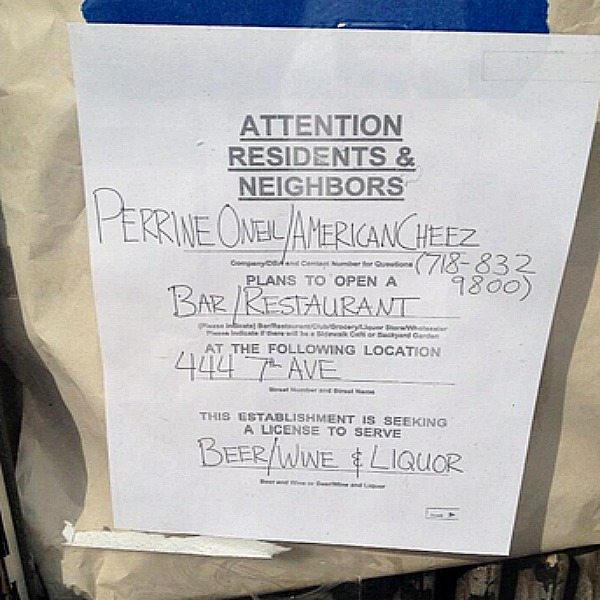 ATTENTION
RESIDENTS &
NEIGHBORS
PERRINE ONEIL/AMERICAN CHEEZ
Company/DBA and Contact Number for Questions (718-832
9800)
PLANS TO OPEN A
BAR/RESTAURANT
(Please indicate) Bar/Restaurant/Club/Grocery/Liquor Store/Wholesaler
Please indicate if there will be a Sidewalk Café or Backyard Garden
AT THE FOLLOWING LOCATION
444 7th AVE
Street Number and Street Name
THIS ESTABLISHMENT IS SEEKING
A LICENSE TO SERVE
BEER/WINE & LIQUOR
Beer and Wine or Beer/Wine and Liquor